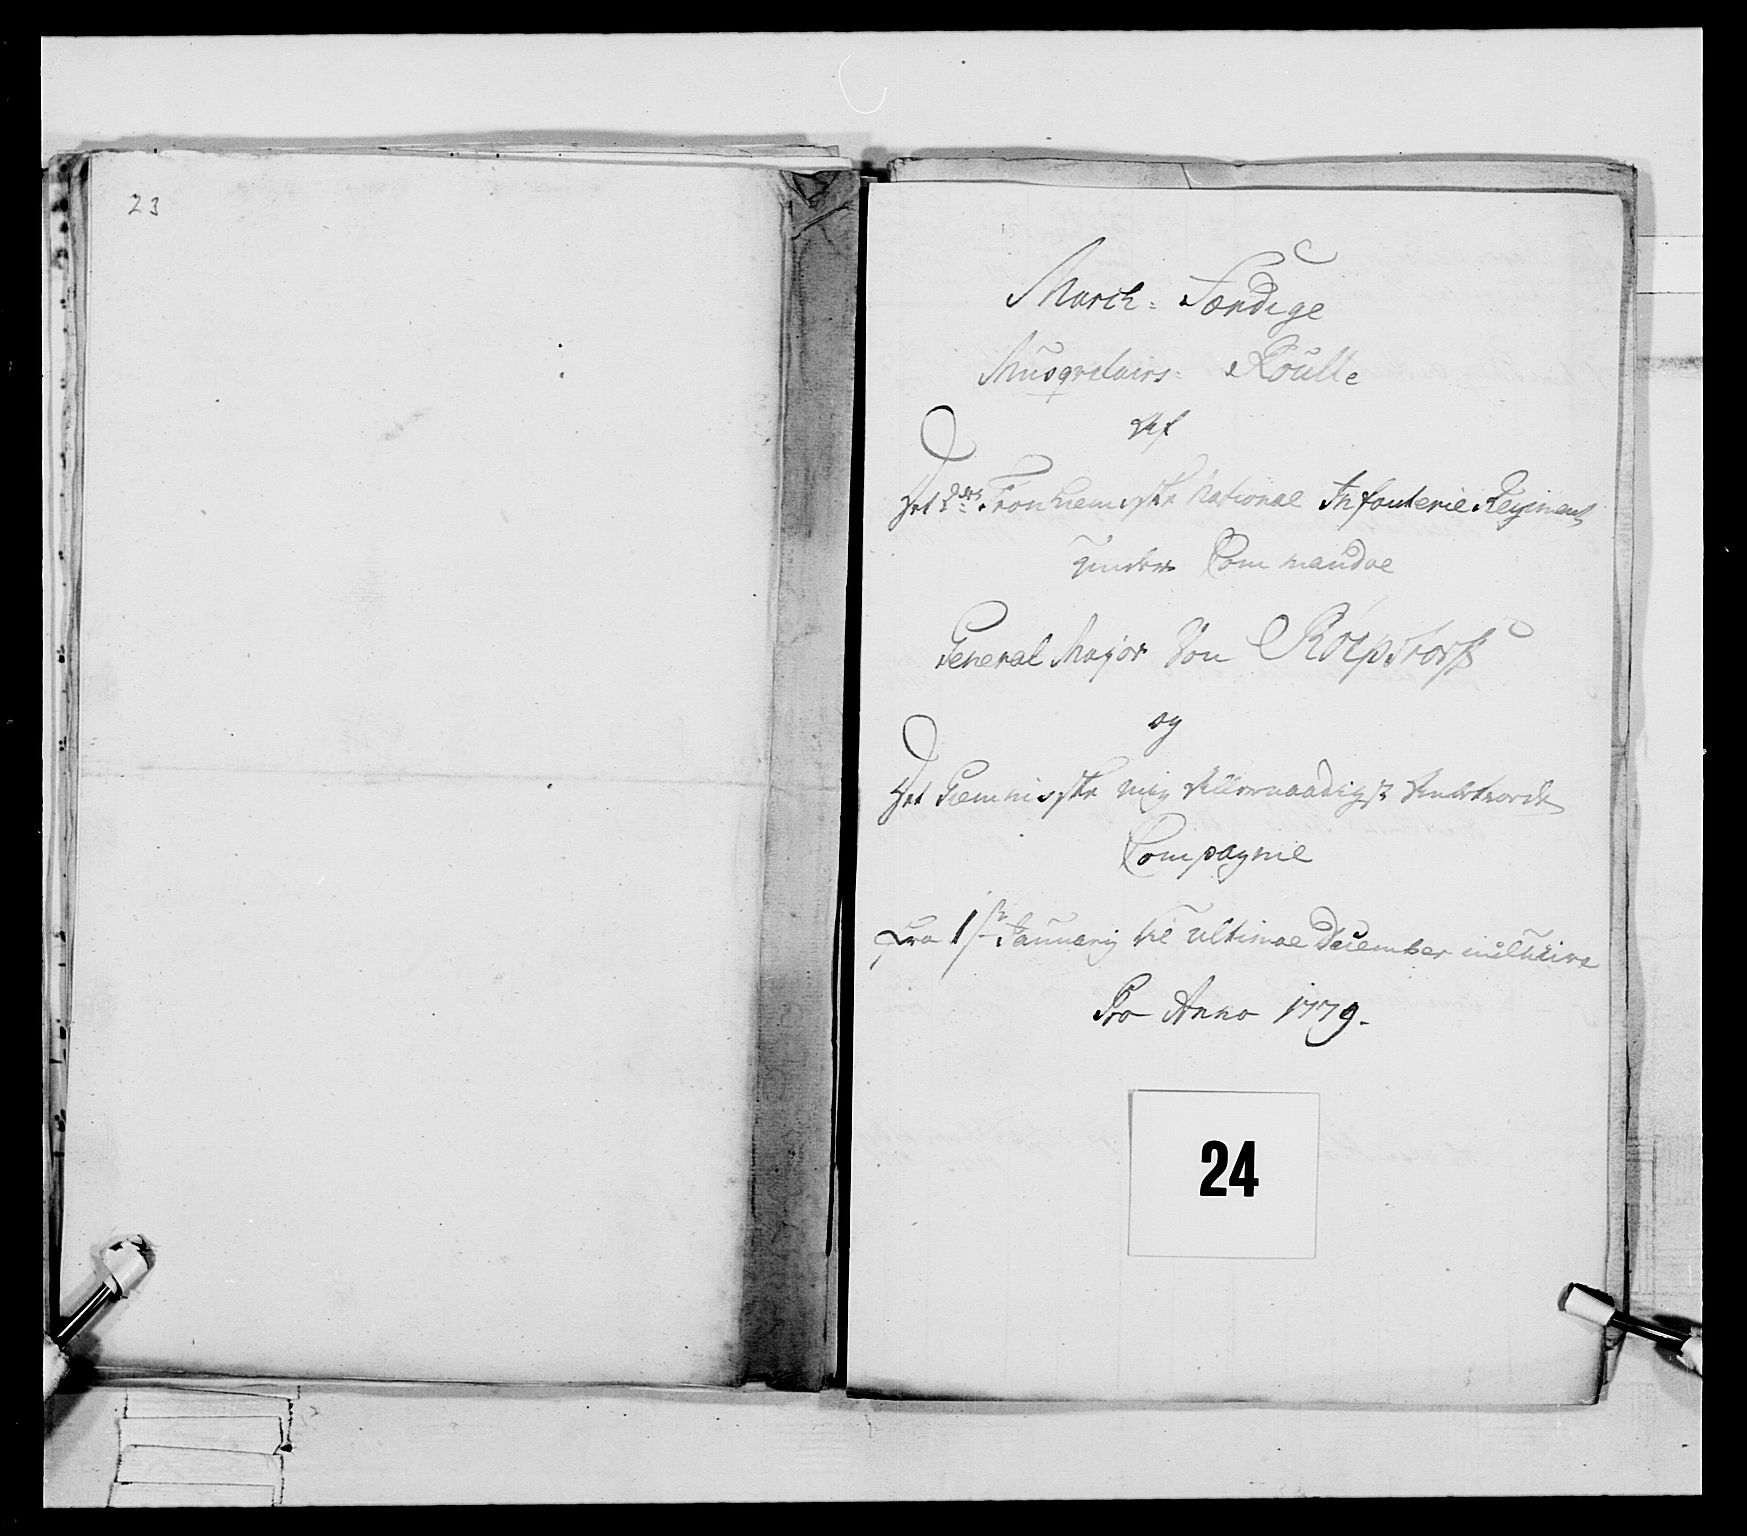 23
March-Færdige
Musqvetairs- Roulle
Af
Det 2det Tronhiemske National Infanterie Regiment
under Commandoe
General Major Von Röepstorff
og
Det Giemnisske mig Allernaadigst Anbetroede
Compagnie
Fra 1ste Januarij til ultimoe December inclusive
Pro Anno 1779.
24